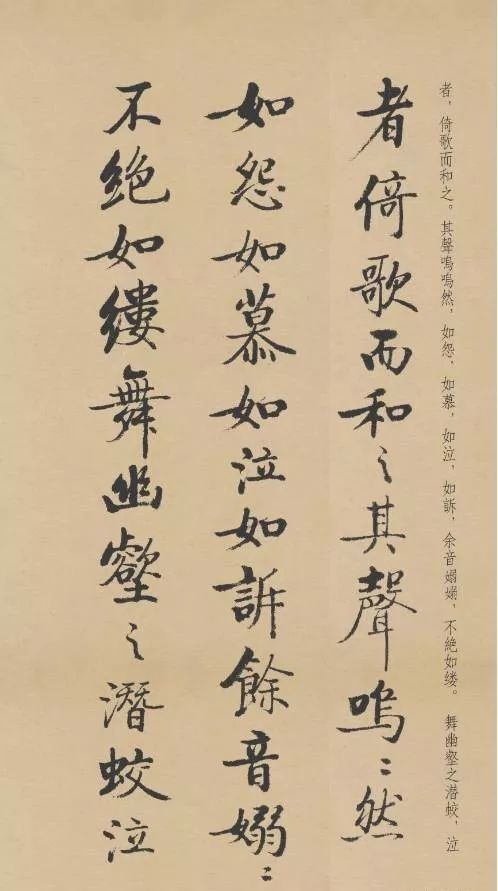 者，倚歌而和之。其聲嗚嗚然，如怨，如慕，如泣，如訴，余音嫋嫋，不絶如缕。　舞幽壑之潜蛟，泣
者倚歌而和之其聲嗚〻然
如怨如慕如泣如訴餘音嫋〻
不絶如縷舞幽壑之潛蛟泣